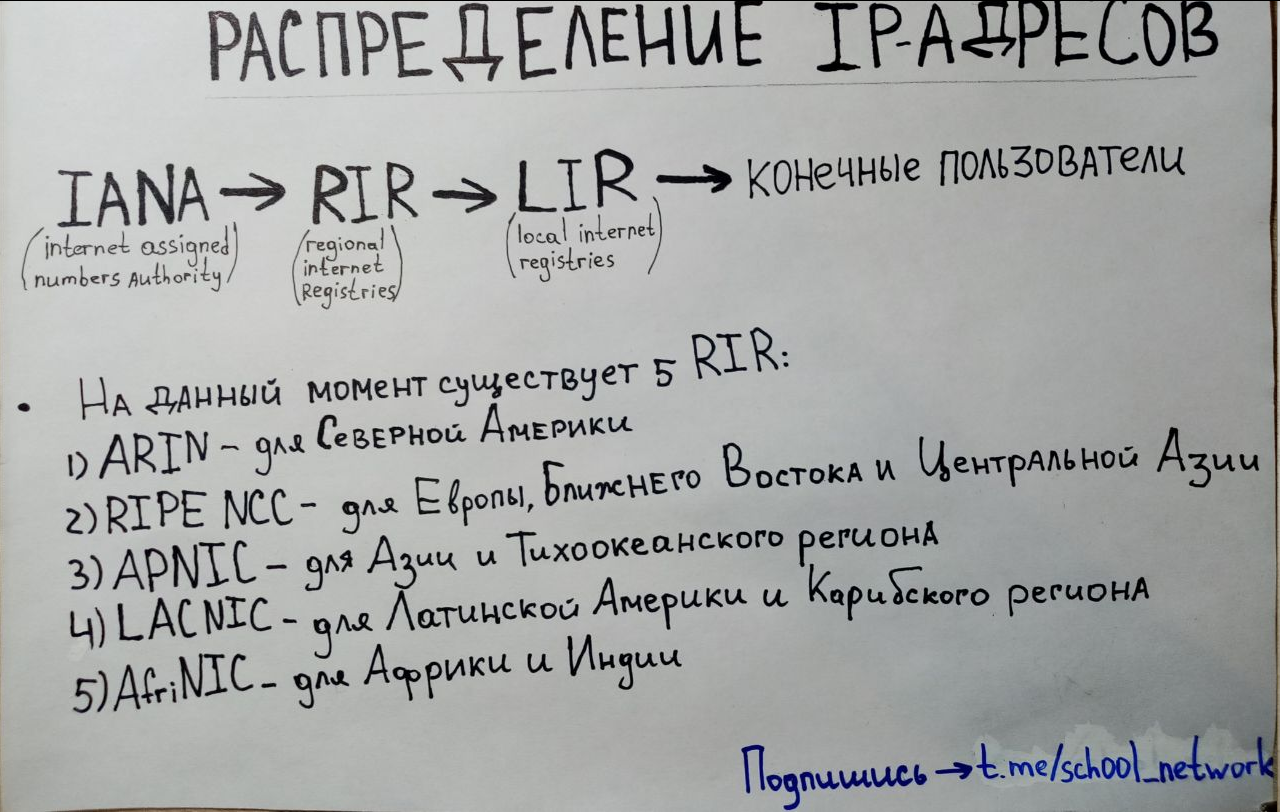 РАСПРЕДЕЛЕНИЕ IP-АДРЕСОВ
IANA → RIR → LIR → конечные пользователи
(internet assigned numbers Authority)
(regional internet Registries)
(local internet registries)
• На данный момент существует 5 RIR:
1) ARIN – для Северной Америки
2) RIPE NCC – для Европы, Ближнего Востока и Центральной Азии
3) APNIC – для Азии и Тихоокеанского региона
4) LACNIC – для Латинской Америки и Карибского региона
5) AfriNIC – для Африки и Индии
Подпишись → t.me/school_network